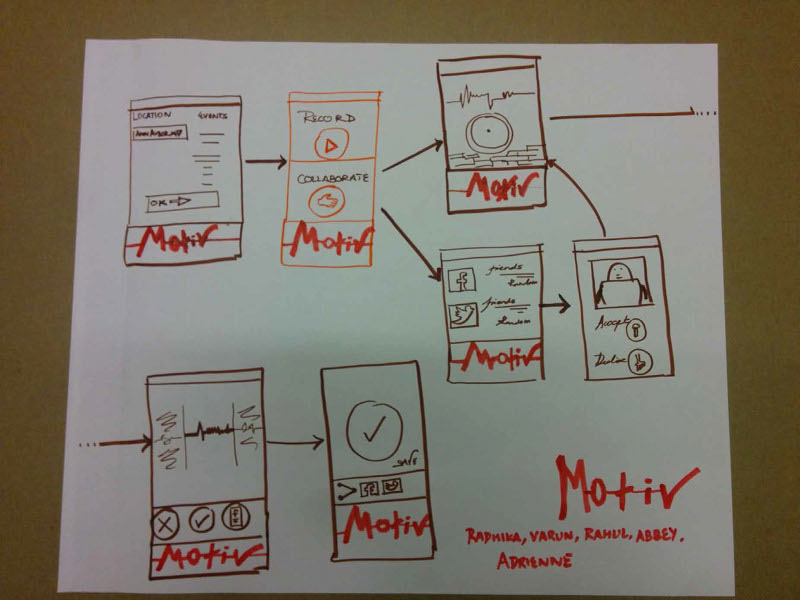 LOCATION EVENTS
OK
Motiv
RECORD
COLLABORATE
Motiv
Motiv
friends
Random
friends
Random
Motiv
Accept
Decline
Motiv
SAVE
Motiv
Motiv
RADHIKA, VARUN, RAHUL, ABBEY,
ADRIENNE